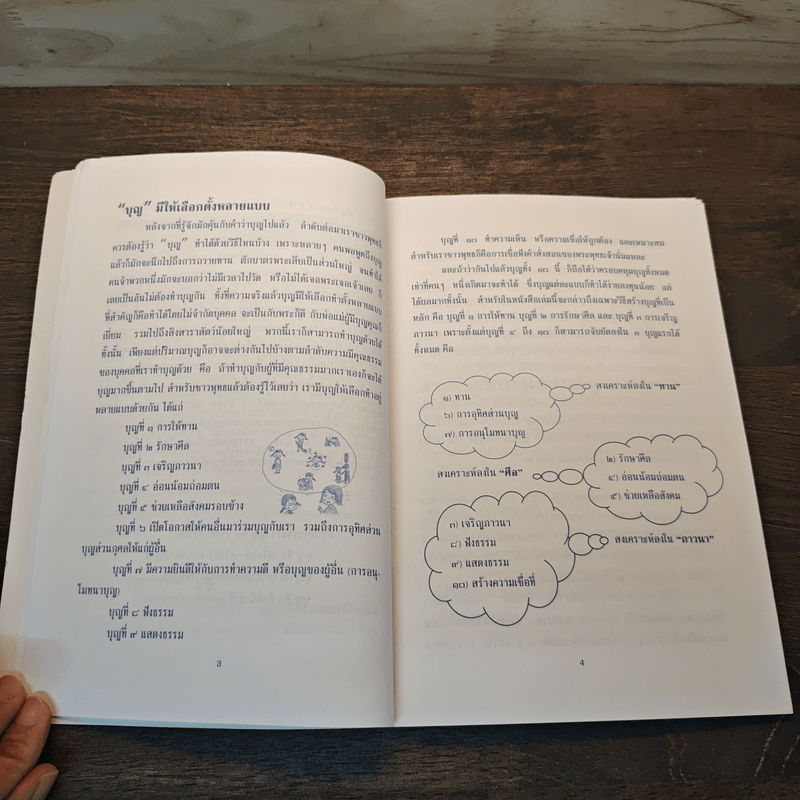 “บุญ” มีให้เลือกตั้งหลายแบบ
หลังจากที่รู้จักมักคุ้นกับคำว่าบุญไปแล้ว ลำดับต่อมาเราชาวพุทธก็
ควรต้องรู้ว่า “บุญ” ทำได้ด้วยวิธีไหนบ้าง เพราะหลายๆ คนพอพูดถึงบุญ
แล้วก็มักจะนึกไปถึงการถวายทาน ตักบาตรพระเสียเป็นส่วนใหญ่ จนทำให้
คนจำพวกหนึ่งมักจะบอกว่าไม่มีเวลาไปวัด หรือไม่ได้เจอพระเจอเจ้าเลย ก็
เลยเป็นอันไม่ต้องทำบุญกัน ทั้งที่ความจริงแล้วบุญมีให้เลือกทำตั้งหลายแบบ
ที่สำคัญก็คือทำได้โดยไม่จำกัดบุคคล จะเป็นกับพระก็ดี กับพ่อแม่ผู้มีบุญคุณก็
เยี่ยม รวมไปถึงสิงสาราสัตว์น้อยใหญ่ พวกนี้เราก็สามารถทำบุญด้วยได้
ทั้งนั้น เพียงแต่ปริมาณบุญก็อาจจะต่างกันไปบ้างตามลำดับความมีคุณธรรม
ของบุคคลที่เราทำบุญด้วย คือ ถ้าทำบุญกับผู้ที่มีคุณธรรมมากเราเองก็จะได้
บุญมากขึ้นตามไป สำหรับชาวพุทธแล้วต้องรู้ไว้เลยว่า เรามีบุญให้เลือกทำอยู่
หลายแบบด้วยกัน ได้แก่
บุญที่ ๑ การให้ทาน
บุญที่ ๒ รักษาศีล
บุญที่ ๓ เจริญภาวนา
บุญที่ ๔ อ่อนน้อมถ่อมตน
บุญที่ ๕ ช่วยเหลือสังคมรอบข้าง
บุญที่ ๖ เปิดโอกาสให้คนอื่นมาร่วมบุญกับเรา รวมถึงการอุทิศส่วน
บุญส่วนกุศลให้แก่ผู้อื่น
บุญที่ ๗ มีความยินดีให้กับการทำความดี หรือบุญของผู้อื่น (การอนุ-
โมทนาบุญ)
บุญที่ ๘ ฟังธรรม
บุญที่ ๙ แสดงธรรม
3
บุญที่ ๑๐ ทำความเห็น หรือความเชื่อให้ถูกต้อง และเหมาะสม
สำหรับเราชาวพุทธก็คือการเชื่อฟังคำสั่งสอนของพระพุทธเจ้านั่นแหละ
และถ้าว่ากันไปแล้วบุญทั้ง ๑๐ นี้ ก็ถือได้ว่าครอบคลุมบุญทั้งหมด
เท่าที่คนๆ หนึ่งเกิดมาจะทำได้ ซึ่งบุญแต่ละแบบก็ทำได้ง่ายลงทุนน้อย แต่
ได้ผลมากทั้งนั้น สำหรับในหนังสือเล่มนี้จะกล่าวถึงเฉพาะวิธีสร้างบุญที่เป็น
หลัก คือ บุญที่ ๑ การให้ทาน บุญที่ ๒ การรักษาศีล และ บุญที่ ๓ การเจริญ
ภาวนา เพราะตั้งแต่บุญที่ ๔ ถึง ๑๐ ก็สามารถจับยัดลงใน ๓ บุญแรกได้
ทั้งหมด คือ
๑) ทาน
๖) การอุทิศส่วนบุญ
๗) การอนุโมทนาบุญ
สงเคราะห์ลงใน “ทาน”
สงเคราะห์ลงใน “ศีล”
๒) รักษาศีล
๔) อ่อนน้อมถ่อมตน
๕) ช่วยเหลือสังคม
๓) เจริญภาวนา
๘) ฟังธรรม
๙) แสดงธรรม
๑๐) สร้างความเชื่อที่
สงเคราะห์ลงใน “ภาวนา”
4